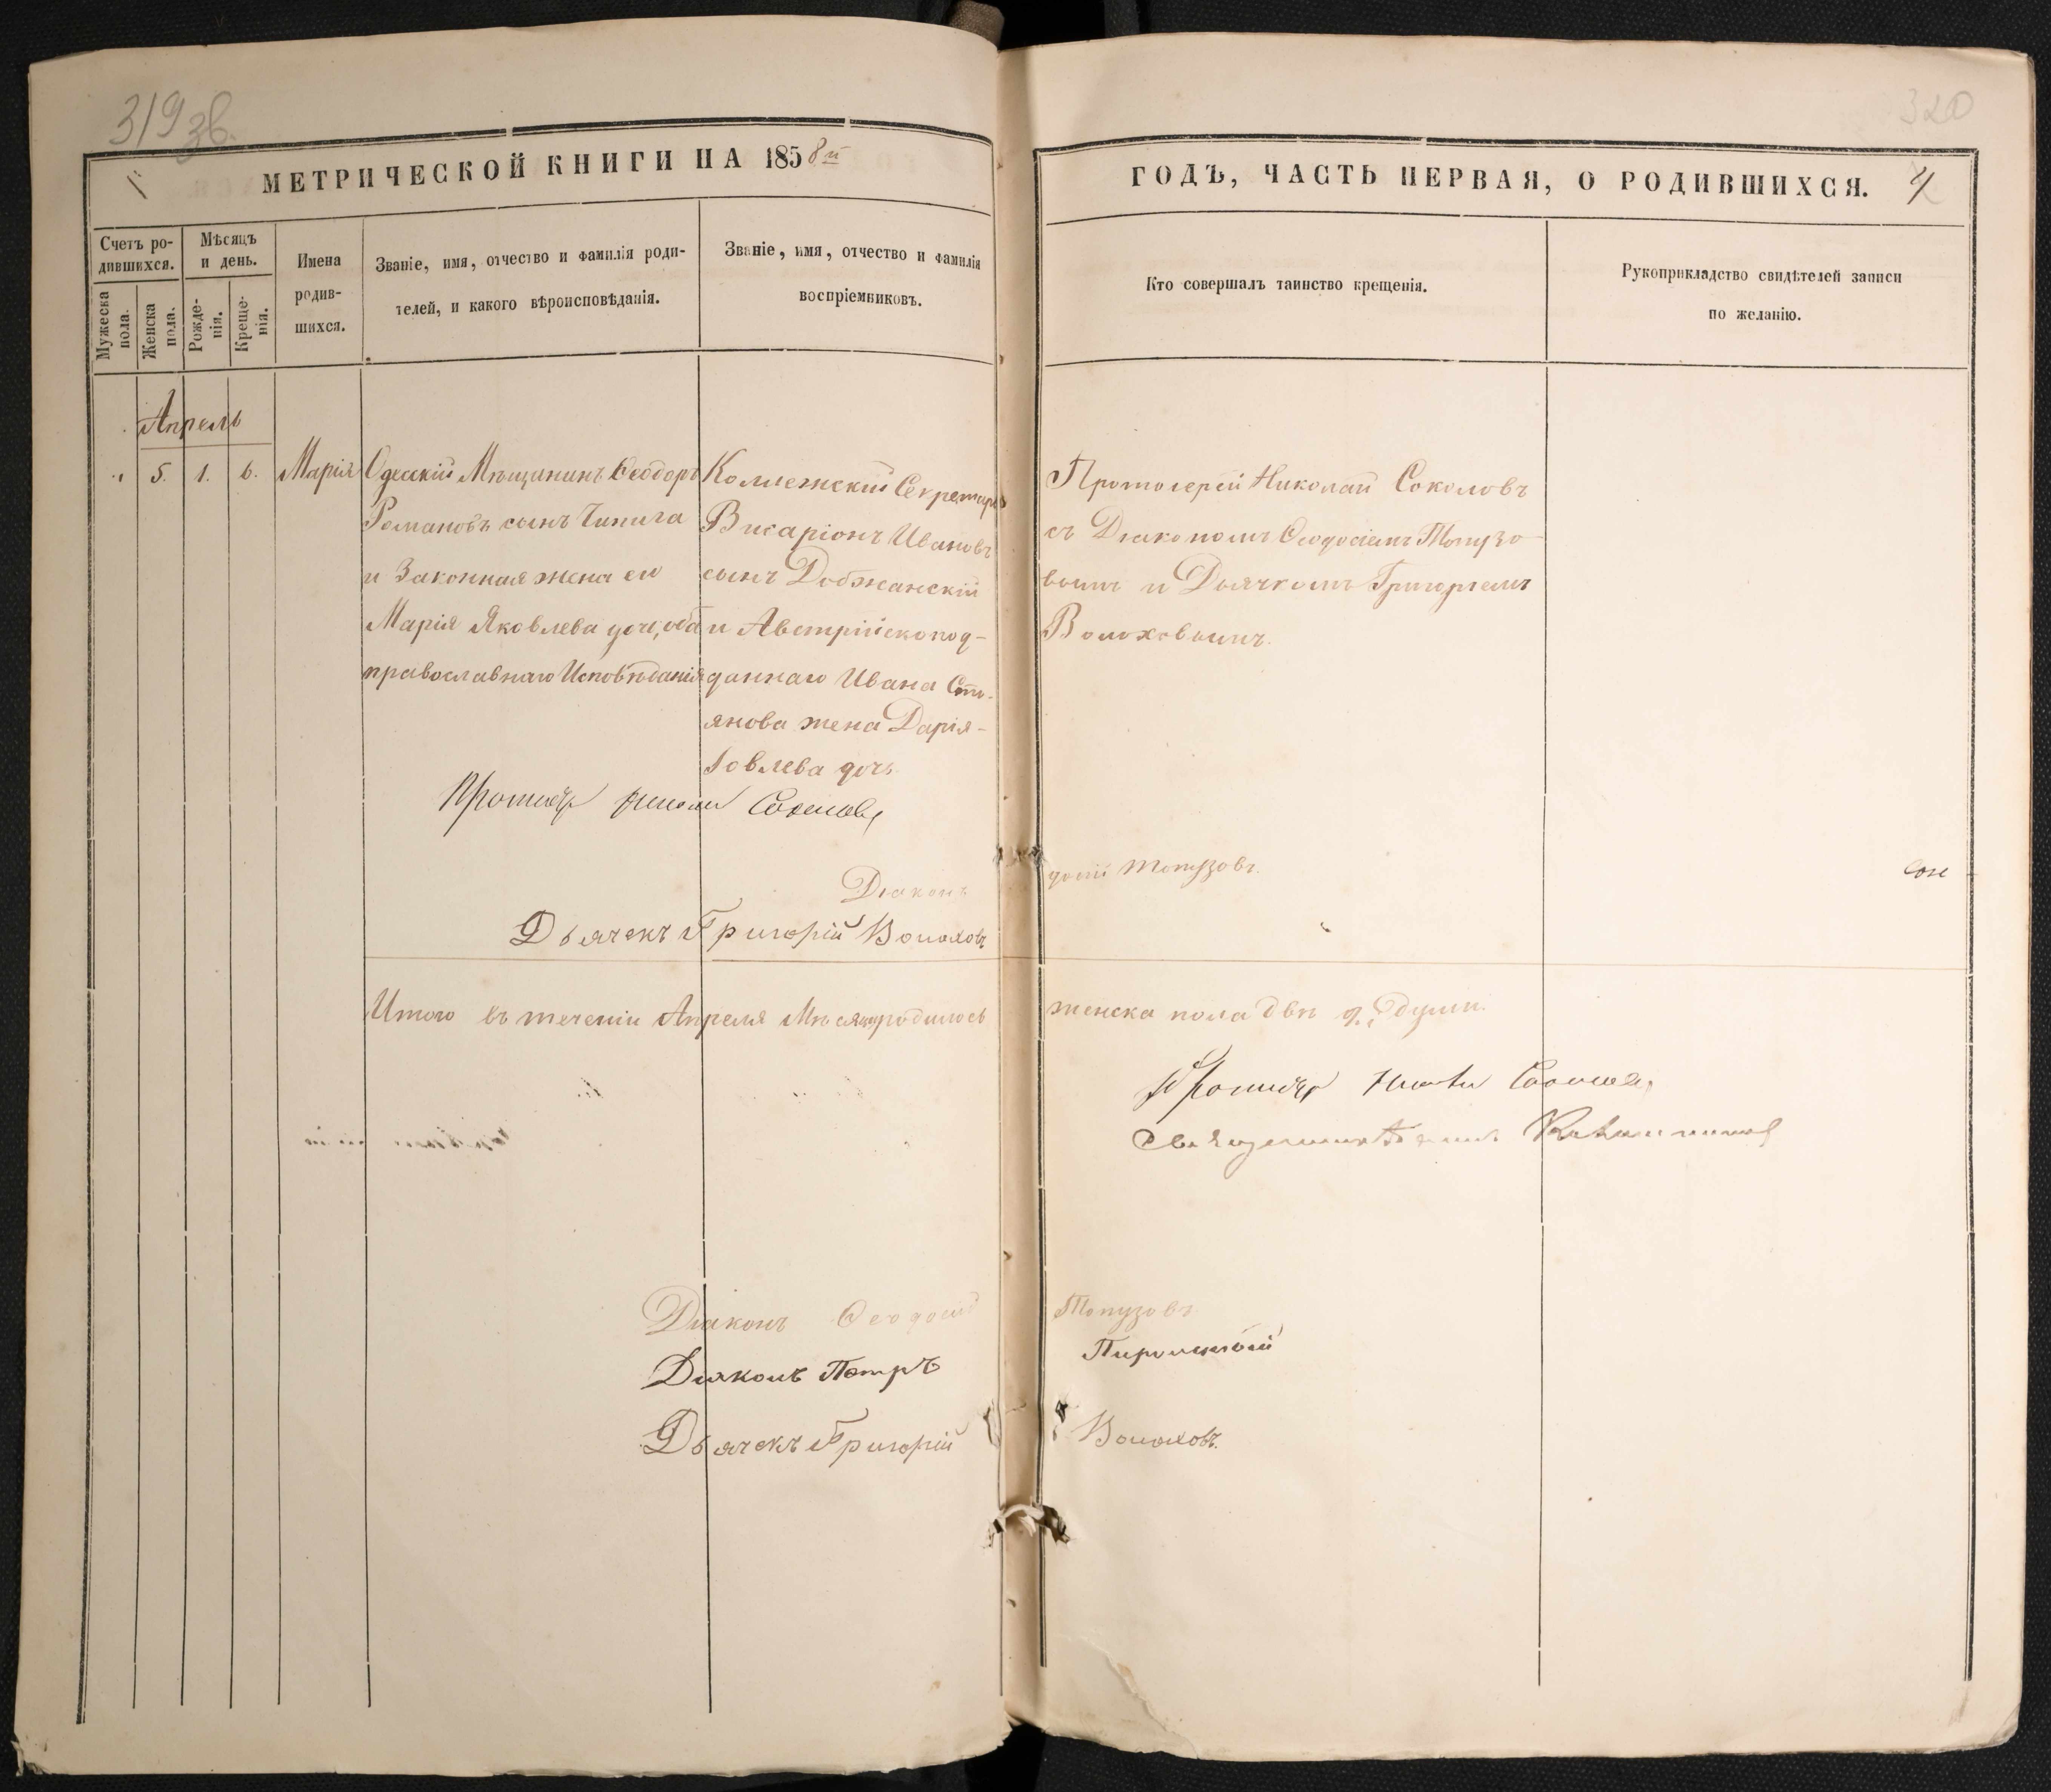 319 зв.
320
МЕТРИЧЕСКОЙ КНИГИ НА 1858 й
ГОДЪ, ЧАСТЬ ПЕРВАЯ, О РОДИВШИХСЯ.
4
Счетъ ро-
дившихся.
Мѣсяцъ
и день.
Мужеска
пола.
Женска
пола.
Рожде-
нія.
Креще-
нія.
Имена
родив-
шихся.
Званіе, имя, отчество и фамилія роди-
телей, и какого вѣроисповѣданія.
Званіе, имя, отчество и фамилія
воспріемниковъ.
Кто совершалъ таинство крещенія.
Рукоприкладство свидѣтелей записи
по желанію.
Апрель
5. 1. 6. Марія
Одесскій Мѣщанинъ Ѳеодоръ
Романовъ сынъ Чипига
и Законная жена его
Марія Яковлева дочь, оба
православнаго Исповѣданія
Коллежскій Секретарь
Висаріонъ Ивановъ
сынъ Добжанскій
и Австрійскопод-
даннаго Ивана Сто-
янова жена Дарія
Іовлева дочь.
Протоіерей Николай Соколовъ
съ Діакономъ Ѳеодосіемъ Топузо-
вымъ и Дьячкомъ Григоріемъ
Волоховымъ.
Протоіер Николай Соколовъ
Діаконъ
досій Топузовъ.
Дьячекъ Григорій Волоховъ
Итого въ теченіи Апреля Мѣсяца родилось
женска пола двѣ души.
Протоіер Соколовъ
Діаконъ Ѳеодосій Топузовъ
Діаконъ Петръ
Дьячекъ Григорій Волоховъ.